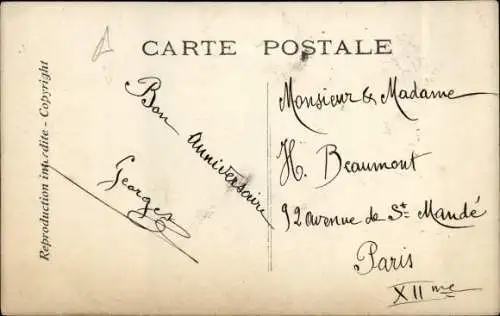 CARTE POSTALE
Reproduction interdite - Copyright
Bon anniversaire
Georges
Monsieur & Madame
H. Beaumont
92 avenue de St Mandé
Paris
XIIme